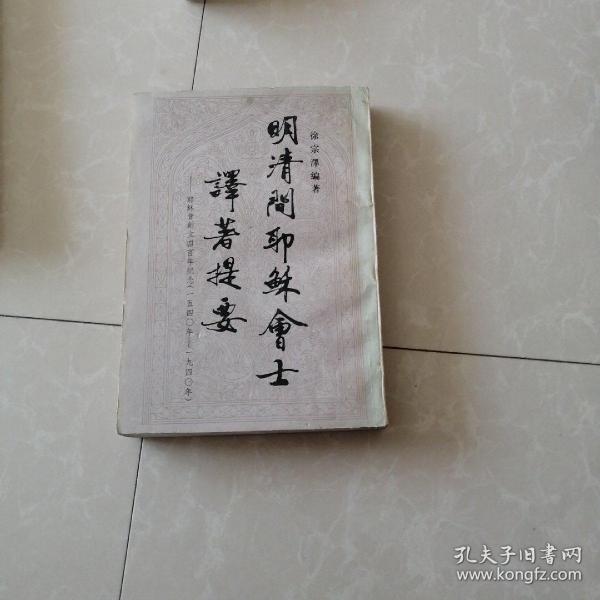 徐宗澤編著
明清間耶穌會士
譯著提要
——耶穌會創立四百年紀念(一五四〇年——一九四〇年)
孔夫子旧書网
www.kongfz.com